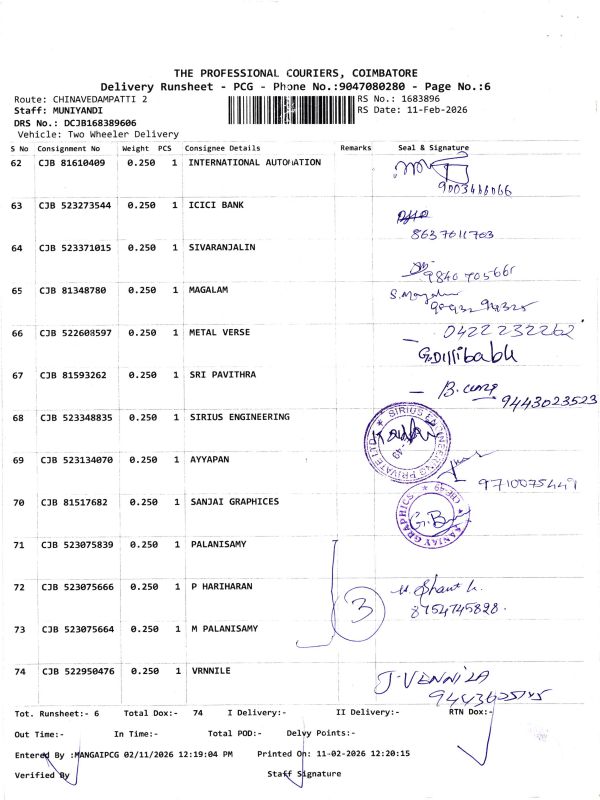 THE PROFESSIONAL COURIERS, COIMBATORE
Delivery Runsheet - PCG - Phone No.:9047080280 - Page No.:6
Route: CHINAVEDAMPATTI 2 RS No.: 1683896
Staff: MUNIYANDI RS Date: 11-Feb-2026
DRS No.: DCJB168389606
Vehicle: Two Wheeler Delivery
S No Consignment No Weight PCS Consignee Details Remarks Seal & Signature
62 CJB 81610409 0.250 1 INTERNATIONAL AUTOMATION
63 CJB 523273544 0.250 1 ICICI BANK
8637011703
64 CJB 523371015 0.250 1 SIVARANJALIN
9840705661
65 CJB 81348780 0.250 1 MAGALAM
66 CJB 522608597 0.250 1 METAL VERSE
0422 232262
G.Dillibabu
67 CJB 81593262 0.250 1 SRI PAVITHRA
9443023523
68 CJB 523348835 0.250 1 SIRIUS ENGINEERING
SIRIUS ENGINEERING PRIVATE LTD
69 CJB 523134070 0.250 1 AYYAPAN
9710075449
70 CJB 81517682 0.250 1 SANJAI GRAPHICES
SANJAY GRAPHICS
71 CJB 523075839 0.250 1 PALANISAMY
72 CJB 523075666 0.250 1 P HARIHARAN
3
8754745828.
73 CJB 523075664 0.250 1 M PALANISAMY
74 CJB 522950476 0.250 1 VRNNILE
J. VENNILA
Tot. Runsheet:- 6 Total Dox:- 74 I Delivery:- II Delivery:- RTN Dox:-
Out Time:- In Time:- Total POD:- Delvy Points:-
Entered By :MANGAIPCG 02/11/2026 12:19:04 PM Printed On: 11-02-2026 12:20:15
Verified By Staff Signature